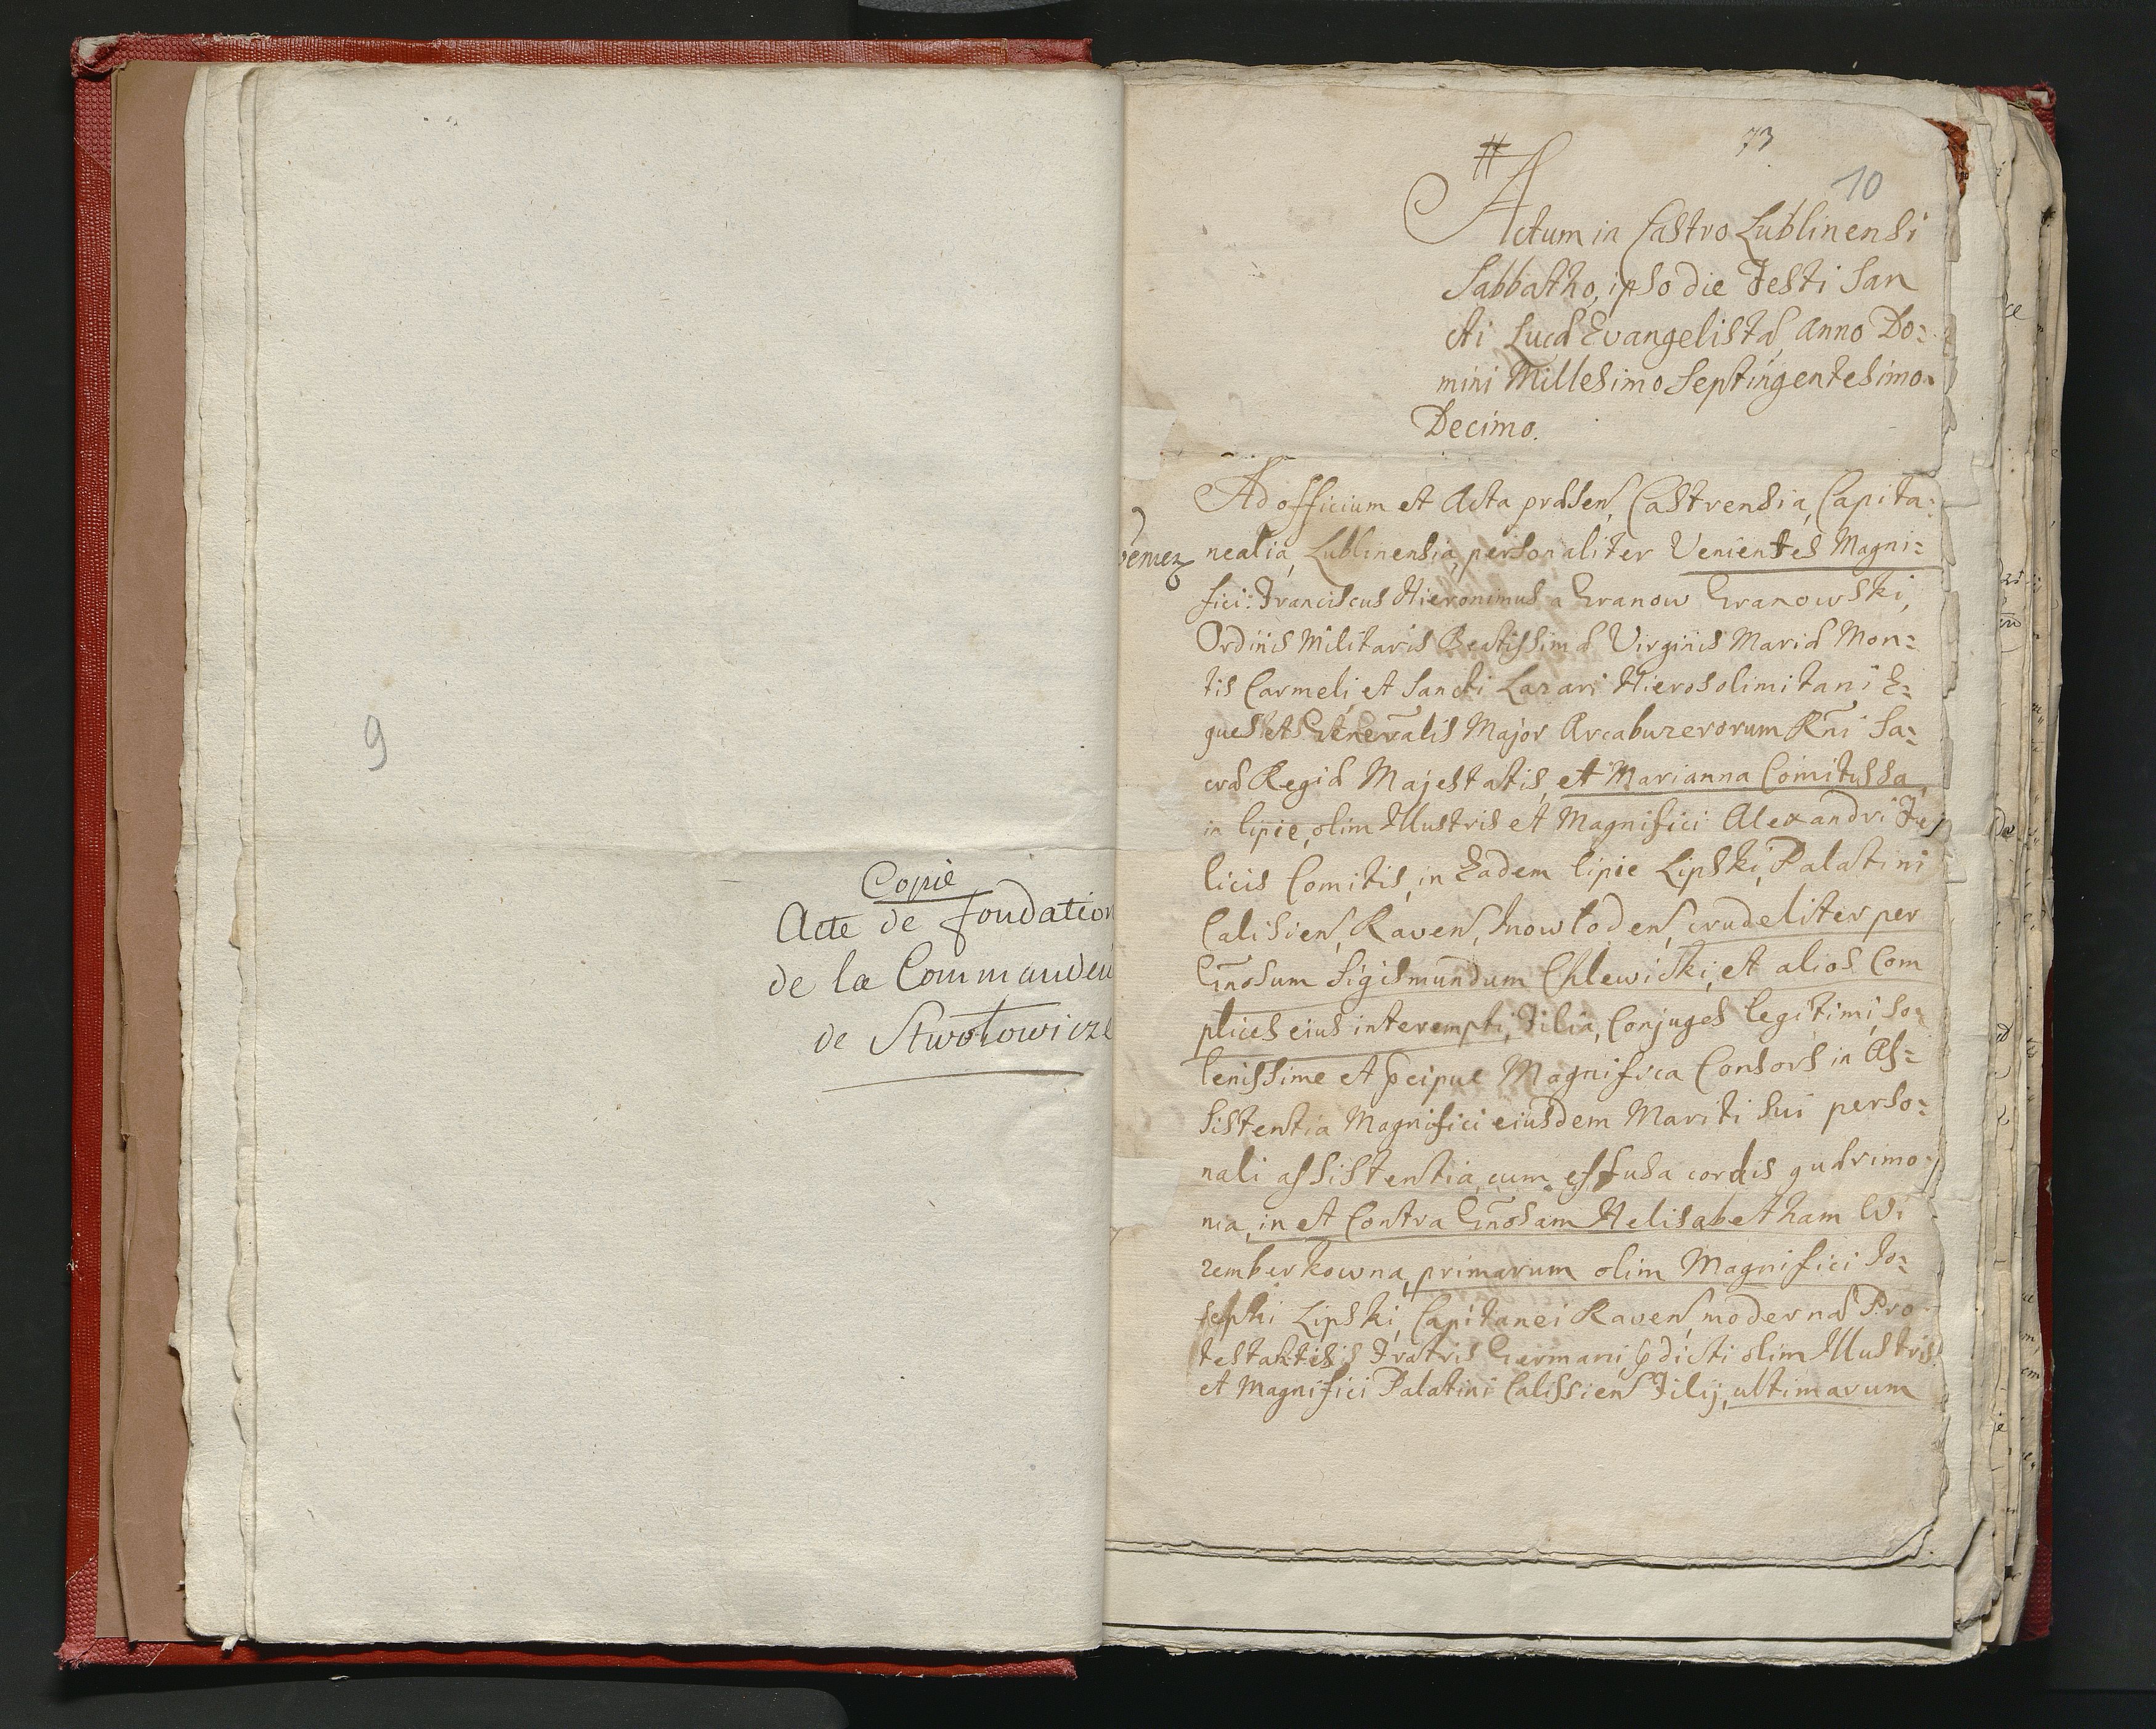 9
Copie
Acte de fondation
de la Commanderi
de Stwołowicze
73
10
#
Actum in Castro Lublinensi
Sabbatho, ipso die Festi San
cti Lucæ Evangelistæ, anno Do=
mini Millesimo Septingentesimo
Decimo.
Ad officium et Acta præsen, Castrensia, Capita=
nealia, Lublinensia, personaliter Venientes Magni=
fici: Franciscus Hieronimus a Granow Granowski,
Ordinis Militaris Beatissimæ Virginis Mariæ Mon=
tis Carmeli, et Sancti Lazari Hierosolimitani E=
ques et Generalis Major Arcabuzerorum Rni Sa=
cræ Regiæ Majestatis, et Marianna Comitissa
in lipie, olim Illustris et Magnifici Alexandri Fe
licis Comitis, in Eadem lipie Lipski, Palatini
Calisien, Raven, Inowloden, crudeliter per
Gnosum Sigismundum Chlewicki, et alios Com
plices eius interempti, Filia, Conjuges legitimi, So
lenissime et pcipue Magnifica Consors in As=
sistentia Magnifici eiusdem Mariti sui perso=
nali assistentia, cum effusa cordis quærimo
nia, in et Contra Gnosam Helisabetham Wi
zemberkowna, primarum olim Magnifici Jo=
sephi Lipski, Capitanei Raven, modernæ Pro
testantis Fratris Germani, pdicti olim Illustris
et Magnifici Palatini Calissien Filij, ultimarum